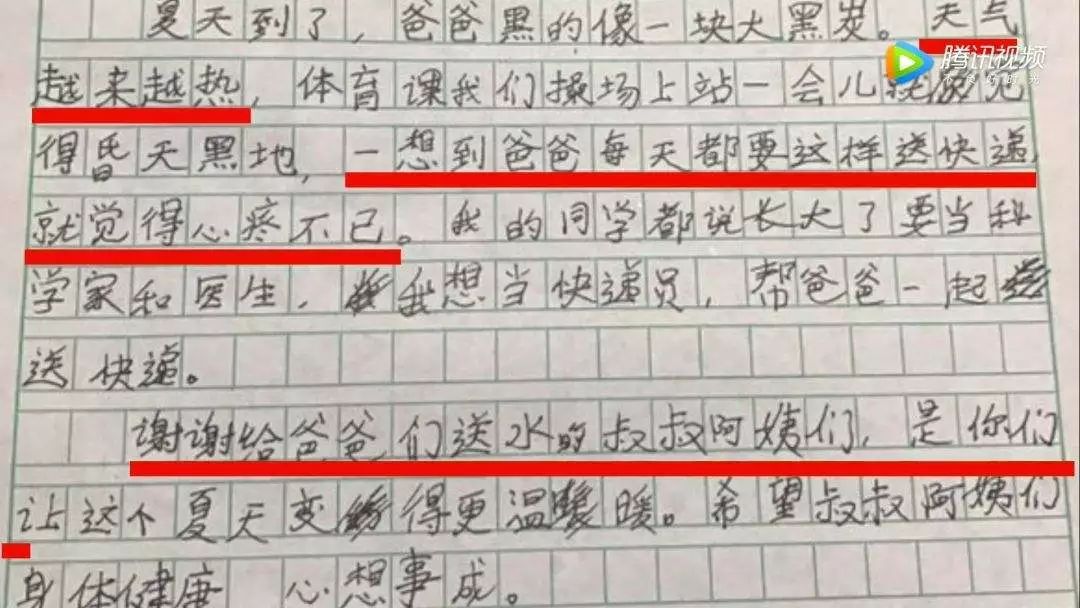 夏天到了，爸爸黑的像一块大黑炭。天气
越来越热，体育课我们操场上站一会儿就
得昏天黑地，一想到爸爸每天都要这样送快递
就觉得心疼不已。我的同学都说长大了要当科
学家和医生，我想当快递员，帮爸爸一起
送快递。
谢谢给爸爸们送水的叔叔阿姨们，是你们
让这个夏天变得更温暖。希望叔叔阿姨们
身体健康 心想事成。
腾讯视频